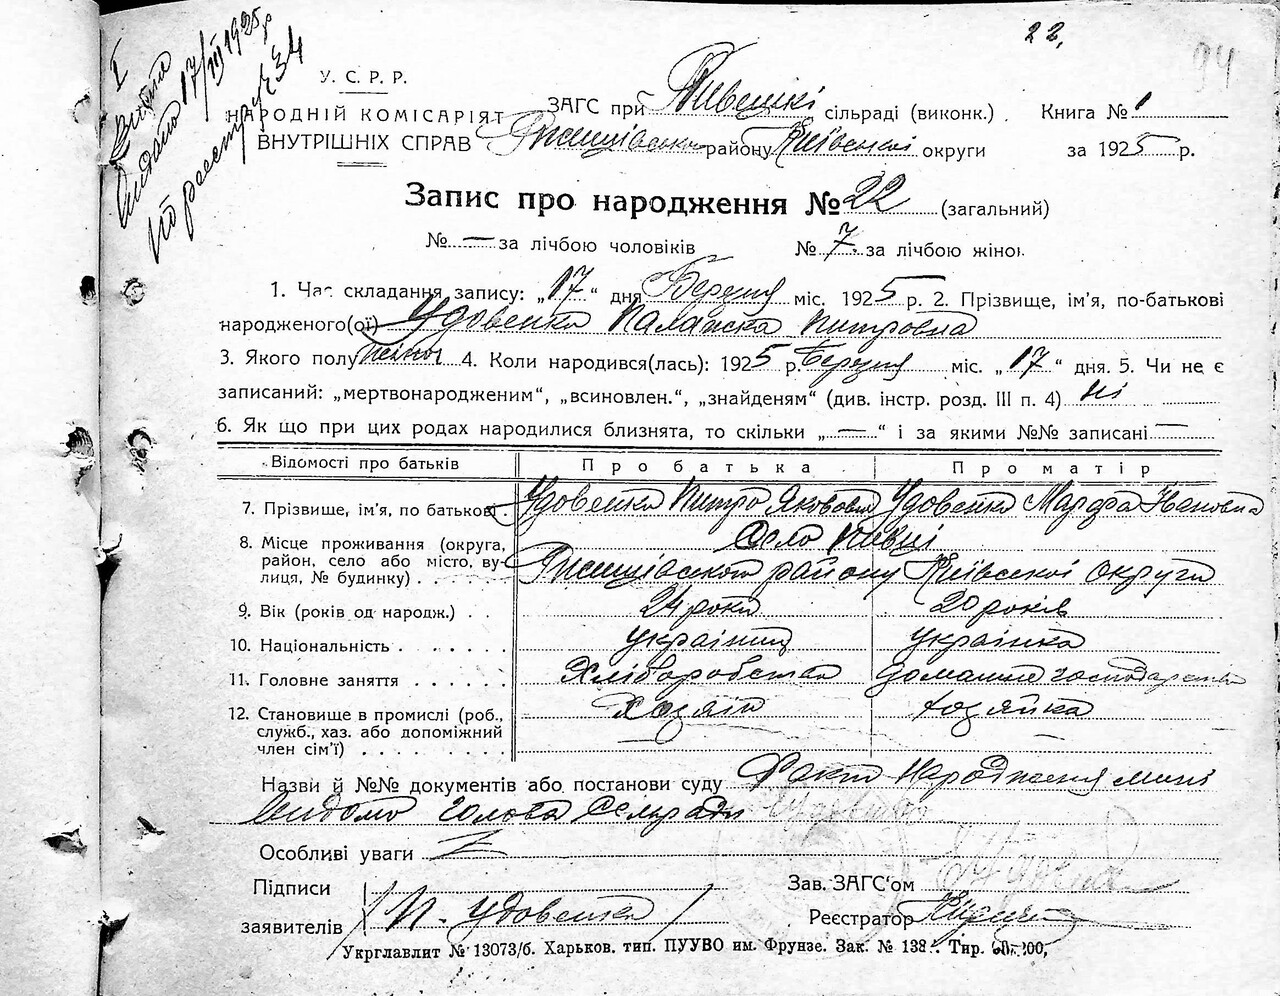 22.
94
I
Витяг
видано 17/III 1925 р
по реестру ч 34
У. С. Р. Р.
НАРОДНІЙ КОМІСАРІЯТ
ВНУТРІШНІХ СПРАВ
ЗАГС при Півецкі сільраді (виконк.) Книга № 1
Ржищівском району Київскої округи за 1925 р.
Запис про народження № 22 (загальний)
№ — за лічбою чоловіків № 7 за лічбою жінок
1. Час складання запису: „17“ дня Березня міс. 1925 р. 2. Прізвище, ім'я, по-батькові
народженого(ої) Удовенко Палажка Питровна
3. Якого полу жіночої 4. Коли народився(лась): 1925 р. Березня міс. „17“ дня. 5. Чи не є
записаний: „мертвонародженим“, „всиновлен.“, „знайденям“ (див. інстр. розд. III п. 4) ні
6. Як що при цих родах народилися близнята, то скільки „—“ і за якими №№ записані —
Відомості про батьків Про батька Про матір
7. Прізвище, ім'я, по батькові Удовенко Питро Яковович Удовенко Марфа Івановна
8. Місце проживання (округа, район, село або місто, вулиця, № будинку) Село Півці
Ржищівского району Київської округи
9. Вік (років од народж.) 24 роки 20 років
10. Національність українец українка
11. Головне заняття Хліборобство домашнє господарство
12. Становище в промислі (роб., служб., хаз. або допоміжний член сім'ї) Хозяїн хозяйка
Назви й №№ документів або постанови суду Факт народження мині
видомо голова Сельради Удовенко
Особливі уваги Z
Підписи
заявителів П. Удовенко
Зав. ЗАГС'ом
Реєстратор
Укрглавлит № 13073/б. Харьков. тип. ПУУВО им. Фрунзе. Зак. № 138 Тир.